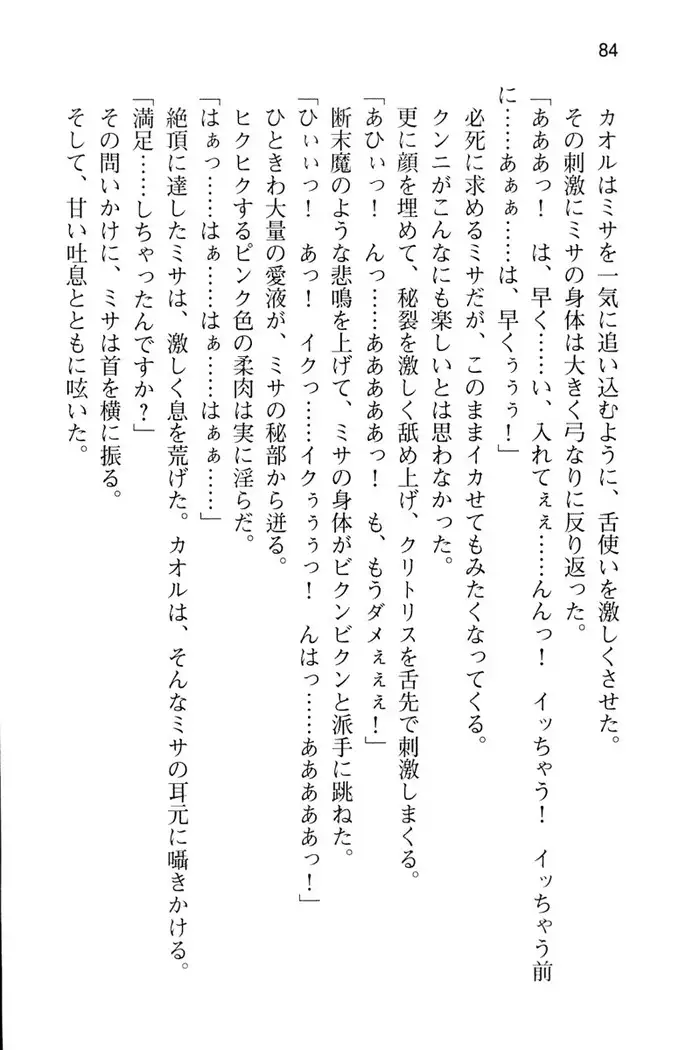 84
カオルはミサを一気に追い込むように、舌使いを激しくさせた。
その刺激にミサの身体は大きく弓なりに反り返った。
「あああっ！　は、早く……い、入れてぇぇ……んんっ！　イッちゃう！　イッちゃう前
に……あぁぁ……は、早くぅぅぅ！」
必死に求めるミサだが、このままイカせてもみたくなってくる。
クンニがこんなにも楽しいとは思わなかった。
更に顔を埋めて、秘裂を激しく舐め上げ、クリトリスを舌先で刺激しまくる。
「あひぃっ！　んっ……あああああっ！　も、もうダメぇぇぇ！」
断末魔のような悲鳴を上げて、ミサの身体がビクンビクンと派手に跳ねた。
「ひぃぃっ！　あっ！　イクっ……イクぅぅぅっ！　んはっ……あああああっ！」
ひときわ大量の愛液が、ミサの秘部から迸る。
ヒクヒクするピンク色の柔肉は実に淫らだ。
「はぁっ……はぁ……はぁ……はぁぁ……」
絶頂に達したミサは、激しく息を荒げた。カオルは、そんなミサの耳元に囁きかける。
「満足……しちゃったんですか？」
その問いかけに、ミサは首を横に振る。
そして、甘い吐息とともに呟いた。